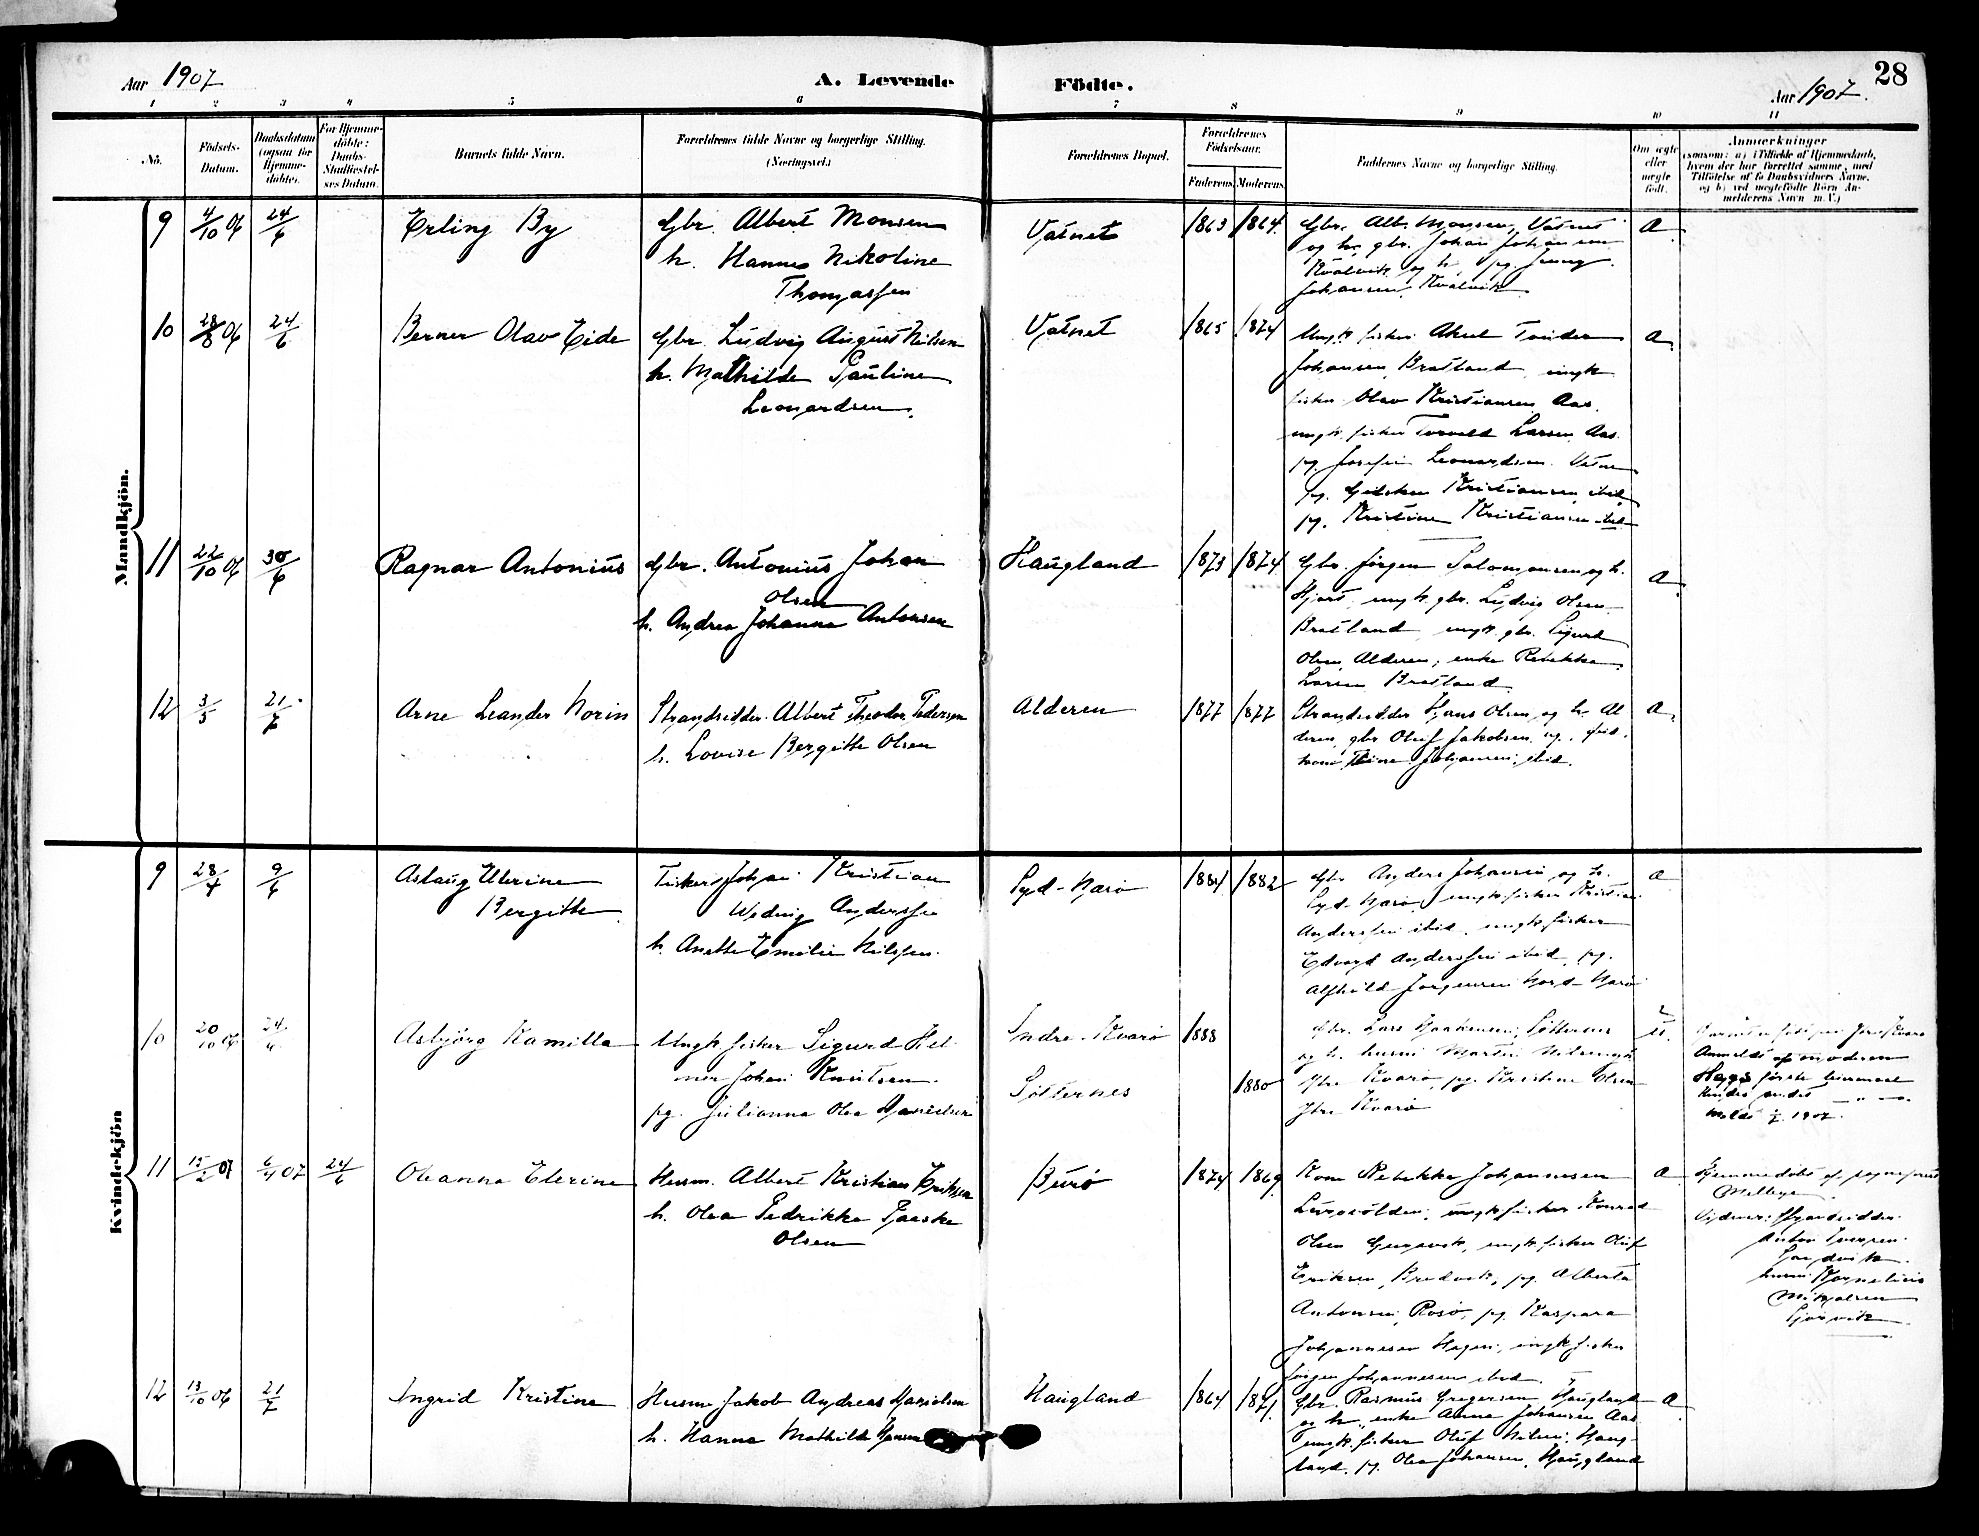 Aar 1907
A. Levende
Födte.
Aar 1907.
28
1 2 3 4 5 6 7 8 9 10 11
No.
Födsels-
Datum.
Daabsdatum
(ogsaa for
Hjemme-
döbte).
For Hjemme-
döbte:
Daabs-
Stadfæstel-
ses Datum.
Barnets fulde Navn.
Forældrenes fulde Navne og borgerlige Stilling.
(Næringsvei.)
Forældrenes Bopæl.
Forældrenes
Födselsaar.
Faderens. Moderens.
Faddernes Navne og borgerlige Stilling.
Om ægte
eller
uægte
födt.
Anmærkninger
(saasom: a) i Tilfælde af Hjemmedaab,
hvem der har forrettet samme, med
Tilföielse af to Daabsvidners Navne,
og b) ved uægtefödte Börn An-
melderens Navn m. V.)
Mandkjön.
9 4/10 06 24/6 Erling By
Gbr. Albert Monsen
h. Hanna Nikoline
Thomassen
Vatnet 1863 1864
Gbr. Alb. Monsen, Vatnet
og h., gbr. Johan Johansen
Kvalvik og h., pg. Jenny
Johansen, Kvalvik
a.
10 28/8 06 24/6 Berner Olav Eide
Gbr. Ludvig August Nilsen
h. Mathilde Pauline
Leonardsen.
Vatnet 1865 1874
Ungk. fisker Aksel Tonder
Johansen, Bratland, ungk
fisker Olav Kristiansen Aas.
ungk. fisker Torvald Larsen Aas
pg. Josefine Leonardsen. Vatne
pg. Kristiansen ibid
pg. Kristine Kristiansen ibid
a.
11 22/10 06 30/6 Ragnar Antonius
Gbr. Antonius Johan
Olsen
h. Andrea Johanna Antonsen
Haugland 1873 1874
Gbr. Jörgen Salomonsen og h.
Hjart, ungk. gbr. Ludvig Olsen
Bratland, ungk. gbr. Sigurd
Olsen, Alderen, enke Rebekka
Larsen Bratland
a.
12 3/3 21/7 Arne Leander Norin
Strandsidder Albert Theodor Pedersen
h. Lovise Bergitte Olsen
Alderen 1877 1877
Strandsidder Hans Olsen og h. Al
deren, gbr Oluf Jakobsen
kone Johansen, ibid.
a.
Kvindekjön
9 28/4 9/6 Aslaug Elerine
Bergitte
Fisker Johan Kristian
Wedvig Anderssen
h. Anette Emelie Nilssen.
Syd-Narö 1884 1882
Gbr Anders Johansen og h.
Syd-Narö, ungk. fisker Kristian
Anderssen ibid, ungk. fisker
Edvard Anderssen ibid, pg.
Alfhild Jörgensen Nord-Narö
a
10 20/10 06 24/6 Asbjörg Kamilla
Ungk fisker Sigurd Hel-
mer Johan Knutsen.
pg. Julianna Olea Danielsen
Indre-Kvarö 1888
Selsternes 1880
Gbr. Lars
og h. husm Martin Nilsen og h.
Ytre Kvarö, pg. Kristine Olsen
Ytre Kvarö
u.
Anmeldt af moderen
Hans förste leiermaal
Hendes andet — " —
Meldt 1907.
11 15/2 07 6/4 07 24/6 Oleanna Elerine
Husm. Albert Kristian Eriksen
h. Olea Fedrikke
Olsen
Burö 1874 1869
Kone Rebekka Johannesen
ungk fisker Konrad
Olsen ungk fisker Oluf
Eriksen, Bredvik, pg. Alberta
Antonsen, Rosö, pg. Kaspara
Johannesen Hagen, ungk fisker
Jörgen Johannesen ibid.
a.
Hjemmedöbt af sogneprest
Melbye.
Vidner: Strandsidder
Anton Iversen
Sandvik.
husm Kornelius
Mikalsen
12 13/10 06 21/7 Ingrid Kristine
Husm Jakob Andreas Danielsen
h. Hanna Mathilde Hansen
Haugland 1864 1871.
Gbr. Rasmus Gregersen Haugland
og h., enke Anna Johansen Aas
ungk. fisker Oluf Nilsen, Haug-
land, pg. Olea Johansen, Haugland
a